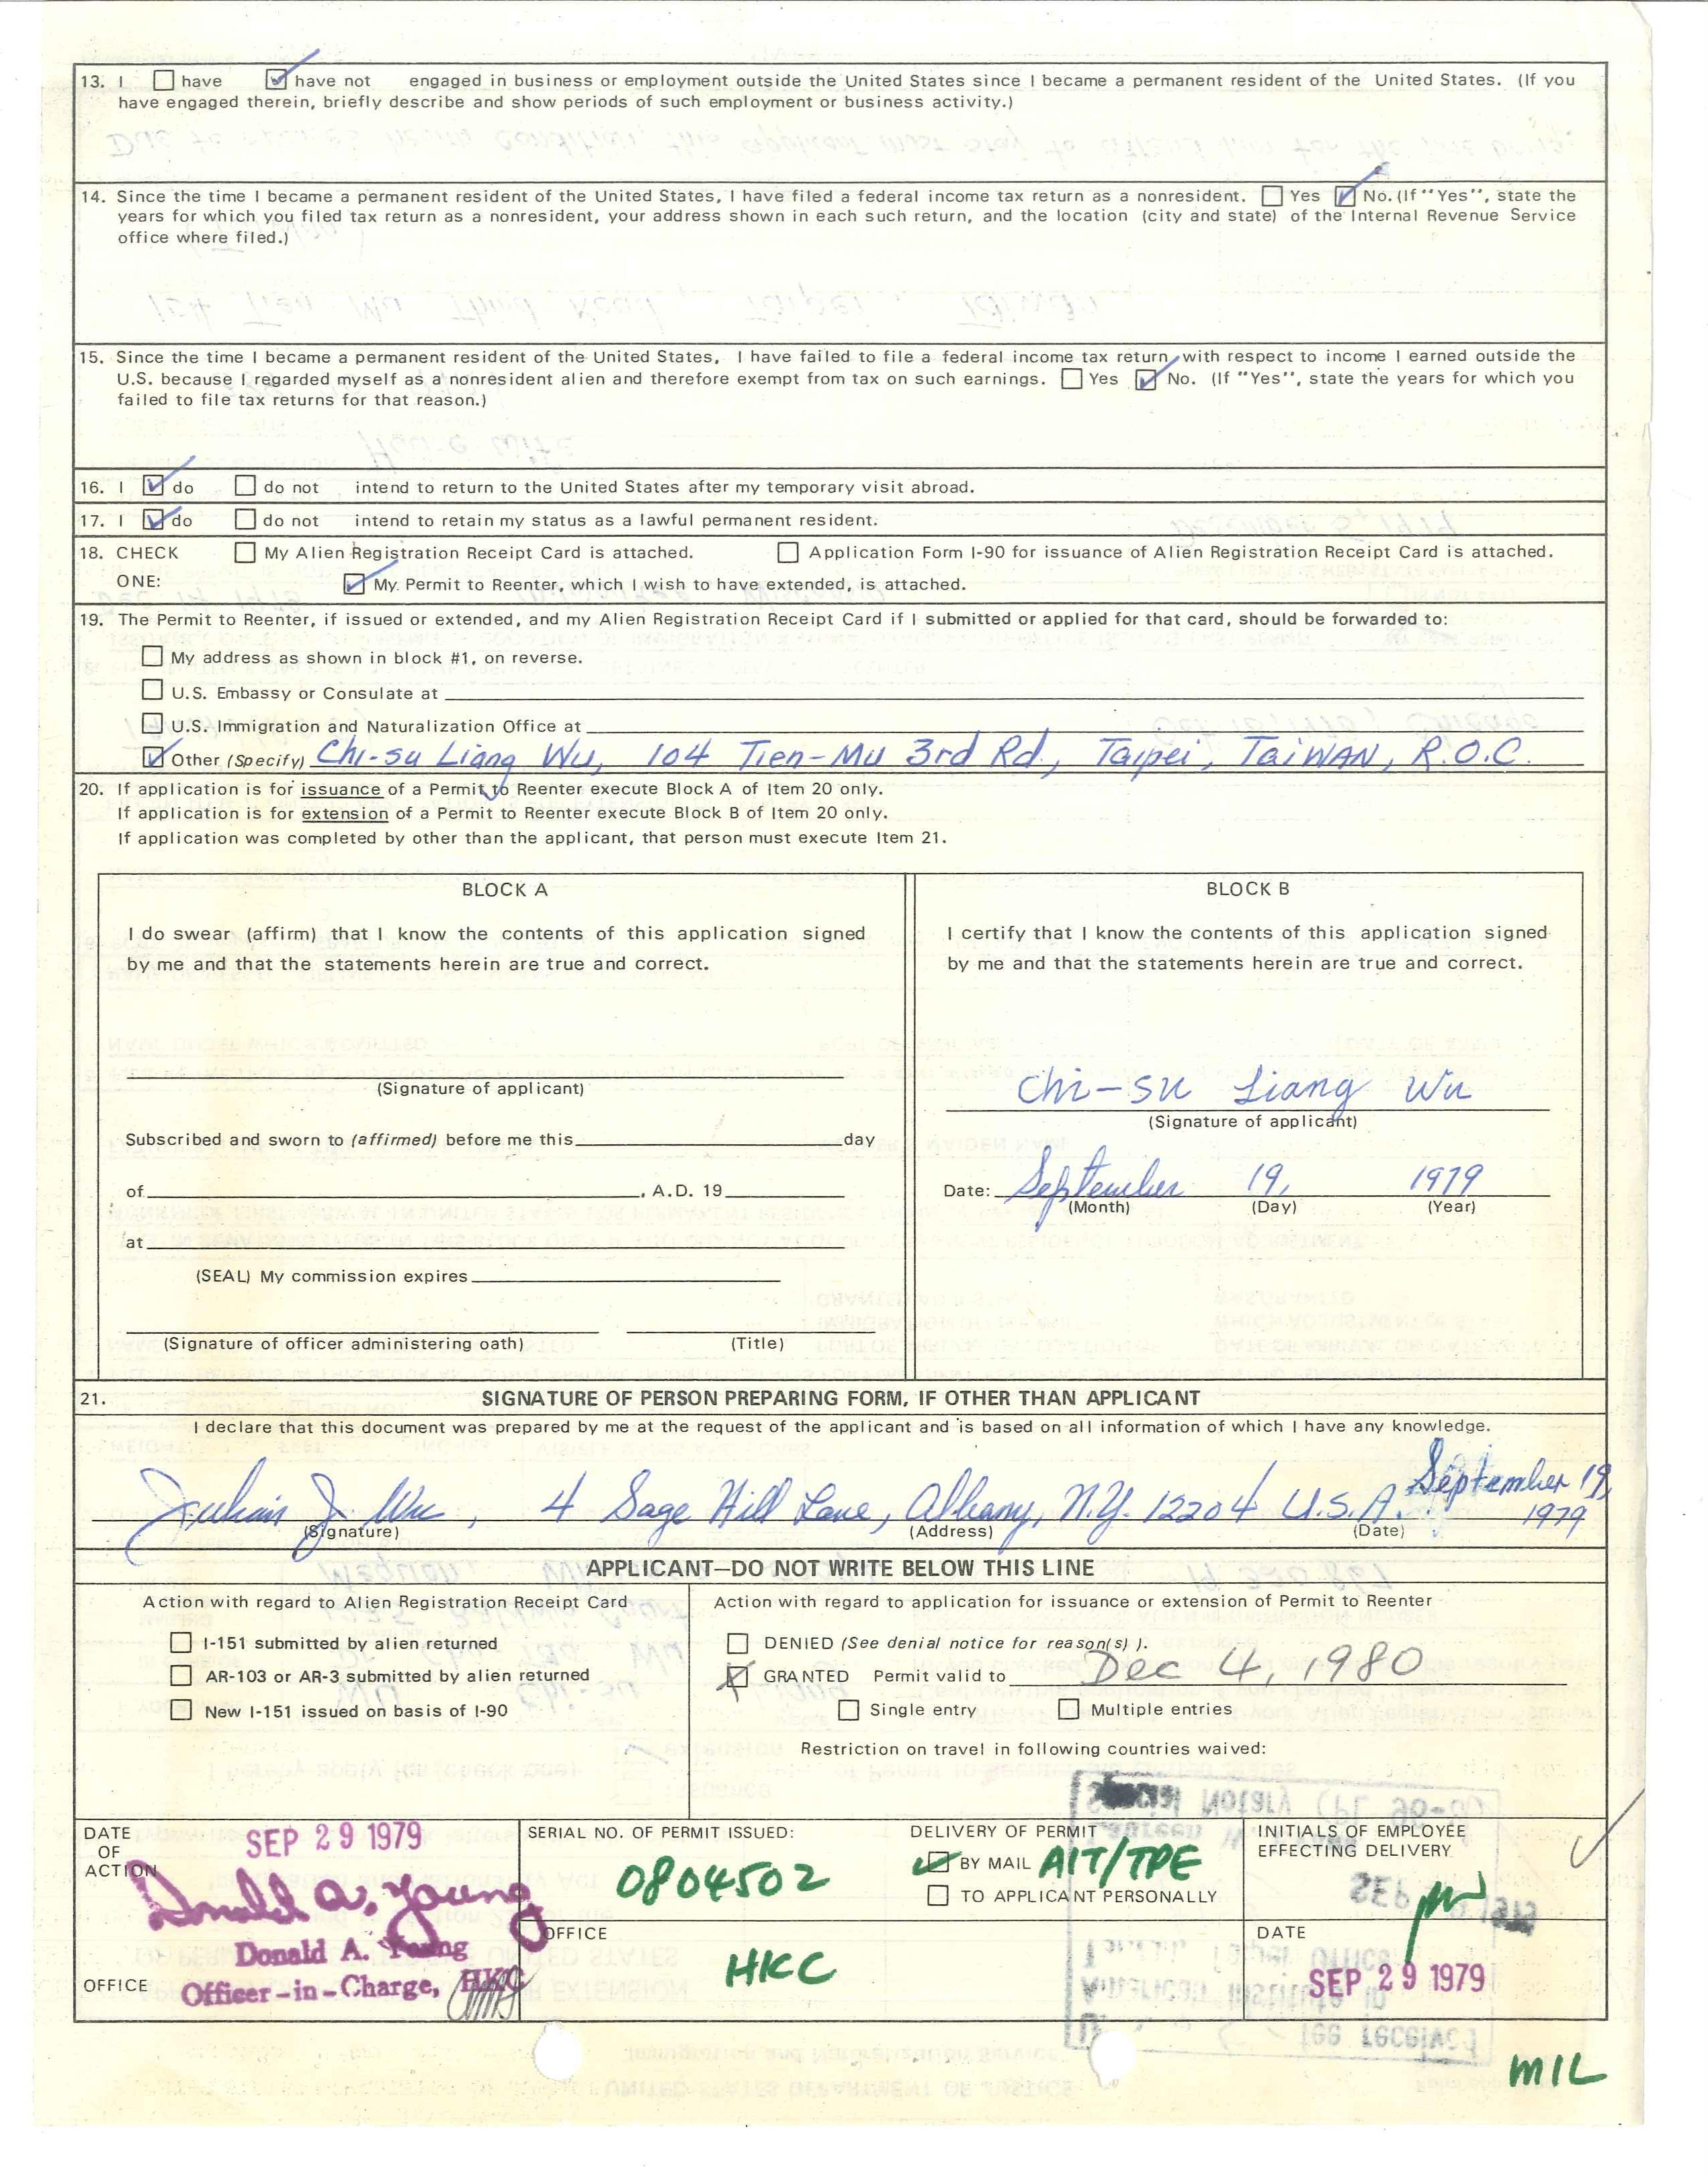 13. I ☐ have ☑ have not engaged in business or employment outside the United States since I became a permanent resident of the United States. (If you
have engaged therein, briefly describe and show periods of such employment or business activity.)
14. Since the time I became a permanent resident of the United States, I have filed a federal income tax return as a nonresident. ☐ Yes ☑ No. (If "Yes", state the
years for which you filed tax return as a nonresident, your address shown in each such return, and the location (city and state) of the Internal Revenue Service
office where filed.)
15. Since the time I became a permanent resident of the United States, I have failed to file a federal income tax return with respect to income I earned outside the
U.S. because I regarded myself as a nonresident alien and therefore exempt from tax on such earnings. ☐ Yes ☑ No. (If "Yes", state the years for which you
failed to file tax returns for that reason.)
16. I ☑ do ☐ do not intend to return to the United States after my temporary visit abroad.
17. I ☑ do ☐ do not intend to retain my status as a lawful permanent resident.
18. CHECK ☐ My Alien Registration Receipt Card is attached. ☐ Application Form I-90 for issuance of Alien Registration Receipt Card is attached.
ONE: ☑ My Permit to Reenter, which I wish to have extended, is attached.
19. The Permit to Reenter, if issued or extended, and my Alien Registration Receipt Card if I submitted or applied for that card, should be forwarded to:
☐ My address as shown in block #1, on reverse.
☐ U.S. Embassy or Consulate at
☐ U.S. Immigration and Naturalization Office at
☑ Other (Specify) Chi-su Liang Wu, 104 Tien-Mu 3rd Rd, Taipei, TAIWAN, R.O.C.
20. If application is for issuance of a Permit to Reenter execute Block A of Item 20 only.
If application is for extension of a Permit to Reenter execute Block B of Item 20 only.
If application was completed by other than the applicant, that person must execute Item 21.
BLOCK A
I do swear (affirm) that I know the contents of this application signed
by me and that the statements herein are true and correct.
(Signature of applicant)
Subscribed and sworn to (affirmed) before me this day
of , A.D. 19
at
(SEAL) My commission expires
(Signature of officer administering oath) (Title)
BLOCK B
I certify that I know the contents of this application signed
by me and that the statements herein are true and correct.
Chi-su Liang Wu
(Signature of applicant)
Date: September 19, 1979
(Month) (Day) (Year)
21. SIGNATURE OF PERSON PREPARING FORM, IF OTHER THAN APPLICANT
I declare that this document was prepared by me at the request of the applicant and is based on all information of which I have any knowledge.
J. Wu, 4 Sage Hill Lane, Albany, N.Y. 12204 U.S.A. September 19,
1979
(Signature) (Address) (Date)
APPLICANT—DO NOT WRITE BELOW THIS LINE
Action with regard to Alien Registration Receipt Card
☐ I-151 submitted by alien returned
☐ AR-103 or AR-3 submitted by alien returned
☐ New I-151 issued on basis of I-90
Action with regard to application for issuance or extension of Permit to Reenter
☐ DENIED (See denial notice for reason(s) ).
☒ GRANTED Permit valid to Dec 4, 1980
☐ Single entry ☐ Multiple entries
Restriction on travel in following countries waived:
DATE
OF
ACTION
SEP 29 1979
Donald A. Young
Donald A. Young
Officer-in-Charge, HKC
OFFICE
SERIAL NO. OF PERMIT ISSUED:
0804502
OFFICE
HKC
DELIVERY OF PERMIT
☑ BY MAIL AIT/TPE
☐ TO APPLICANT PERSONALLY
INITIALS OF EMPLOYEE
EFFECTING DELIVERY
DATE
SEP 29 1979
MIL